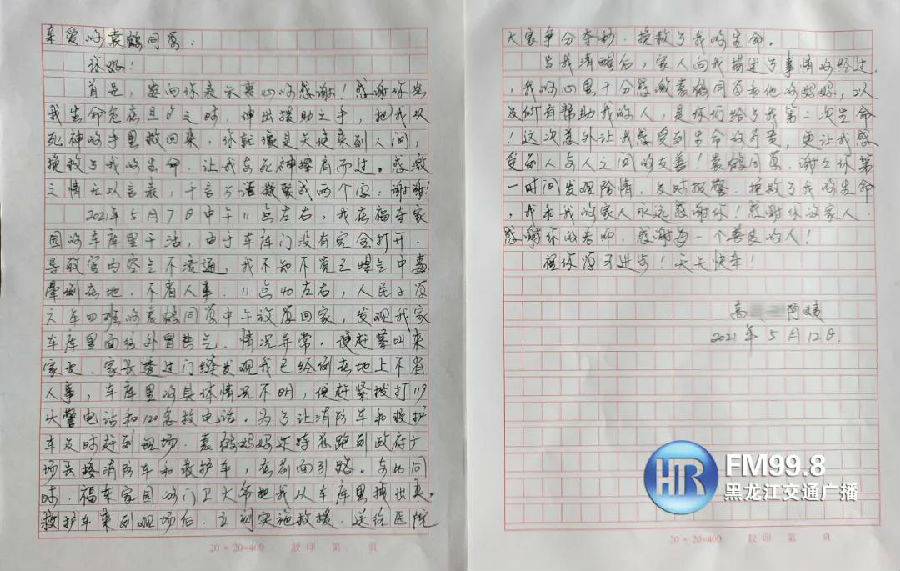 亲爱的袁鹤同学：
你好！
首先，要向你表示衷心的感谢！感谢你在
我生命危痛旦夕之时，伸出援助之手，把我从
死神的手里救回来，你就像是天使来到人间，
拯救了我的生命，让我与死神擦肩而过。感激
之情无以言表，千言万语汇聚成两个字：谢谢
2021年5月7日中午11点左右，我在福音家
园的车库里干活，由于车库门没有完全打开，
导致室内空气不流通，我不知不觉已煤气中毒
晕倒在地，不省人事。11点40左右，人民小学
六年四班的袁鹤同学中午放学回家，发现我家
车库里面往外冒热气，情况异常，便赶紧叫来
家长，家长透过门缝发现我已经倒在地上不省
人事，车库里的具体情况不明，便赶紧拨打119
火警电话和120急救电话。为了让消防车和救护
车及时赶到现场，袁鹤妈妈还特意跑到政府广
场去接消防车和救护车，在前面引路。与此同
时，福东家园的门卫大爷把我从车库里拖出来
救护车来到现场后，立刻实施救援，送往医院
20×20=400 款印 第 页
大家争分夺秒，拯救了我的生命。
当我清醒后，家人向我描述了事情的经过，
我的心里十分感激袁鹤同学和他的妈妈，以
及所有帮助我的人，是你们给了我第二次生命
！这次意外让我感受到生命的可贵，更让我感
受到人与人之间的友善！袁鹤同学，谢谢你第
一时间发现险情，及时报警，拯救了我的生命
，我和我的家人永远感谢你！感谢你的家人，
感谢你的老师，感谢每一个善良的人！
祝你学习进步！天天快乐！
高 陶
2021年5月12日
20×20=400 款印 第 页
HTR FM99.8
黑龙江交通广播